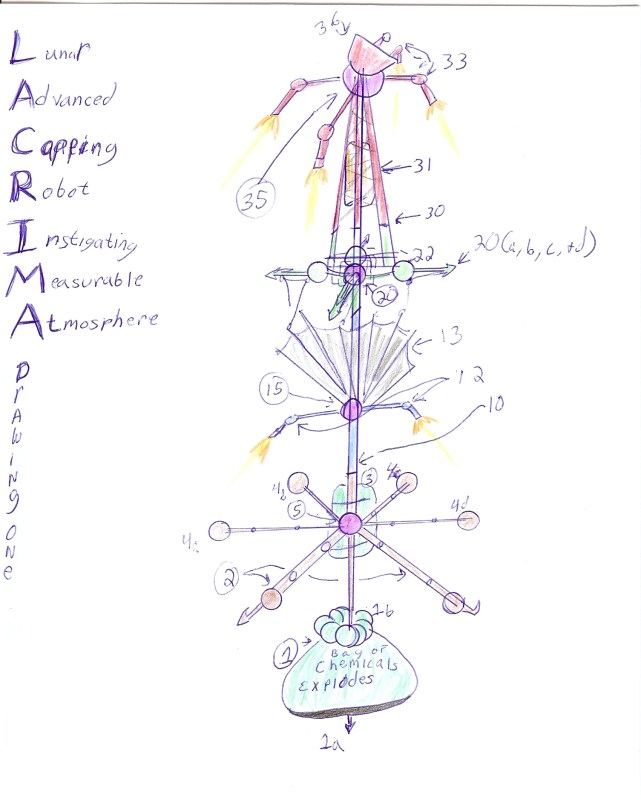 Lunar
Advanced
Capping
Robot
Instigating
Measurable
Atmosphere
DrAwiNg ONe
36
33
35
31
30
22
20(a, b, c, +d)
20
13
15
12
10
3
4b
5
4d
4c
2
1b
1
Bag of
Chemicals
Explodes
1a